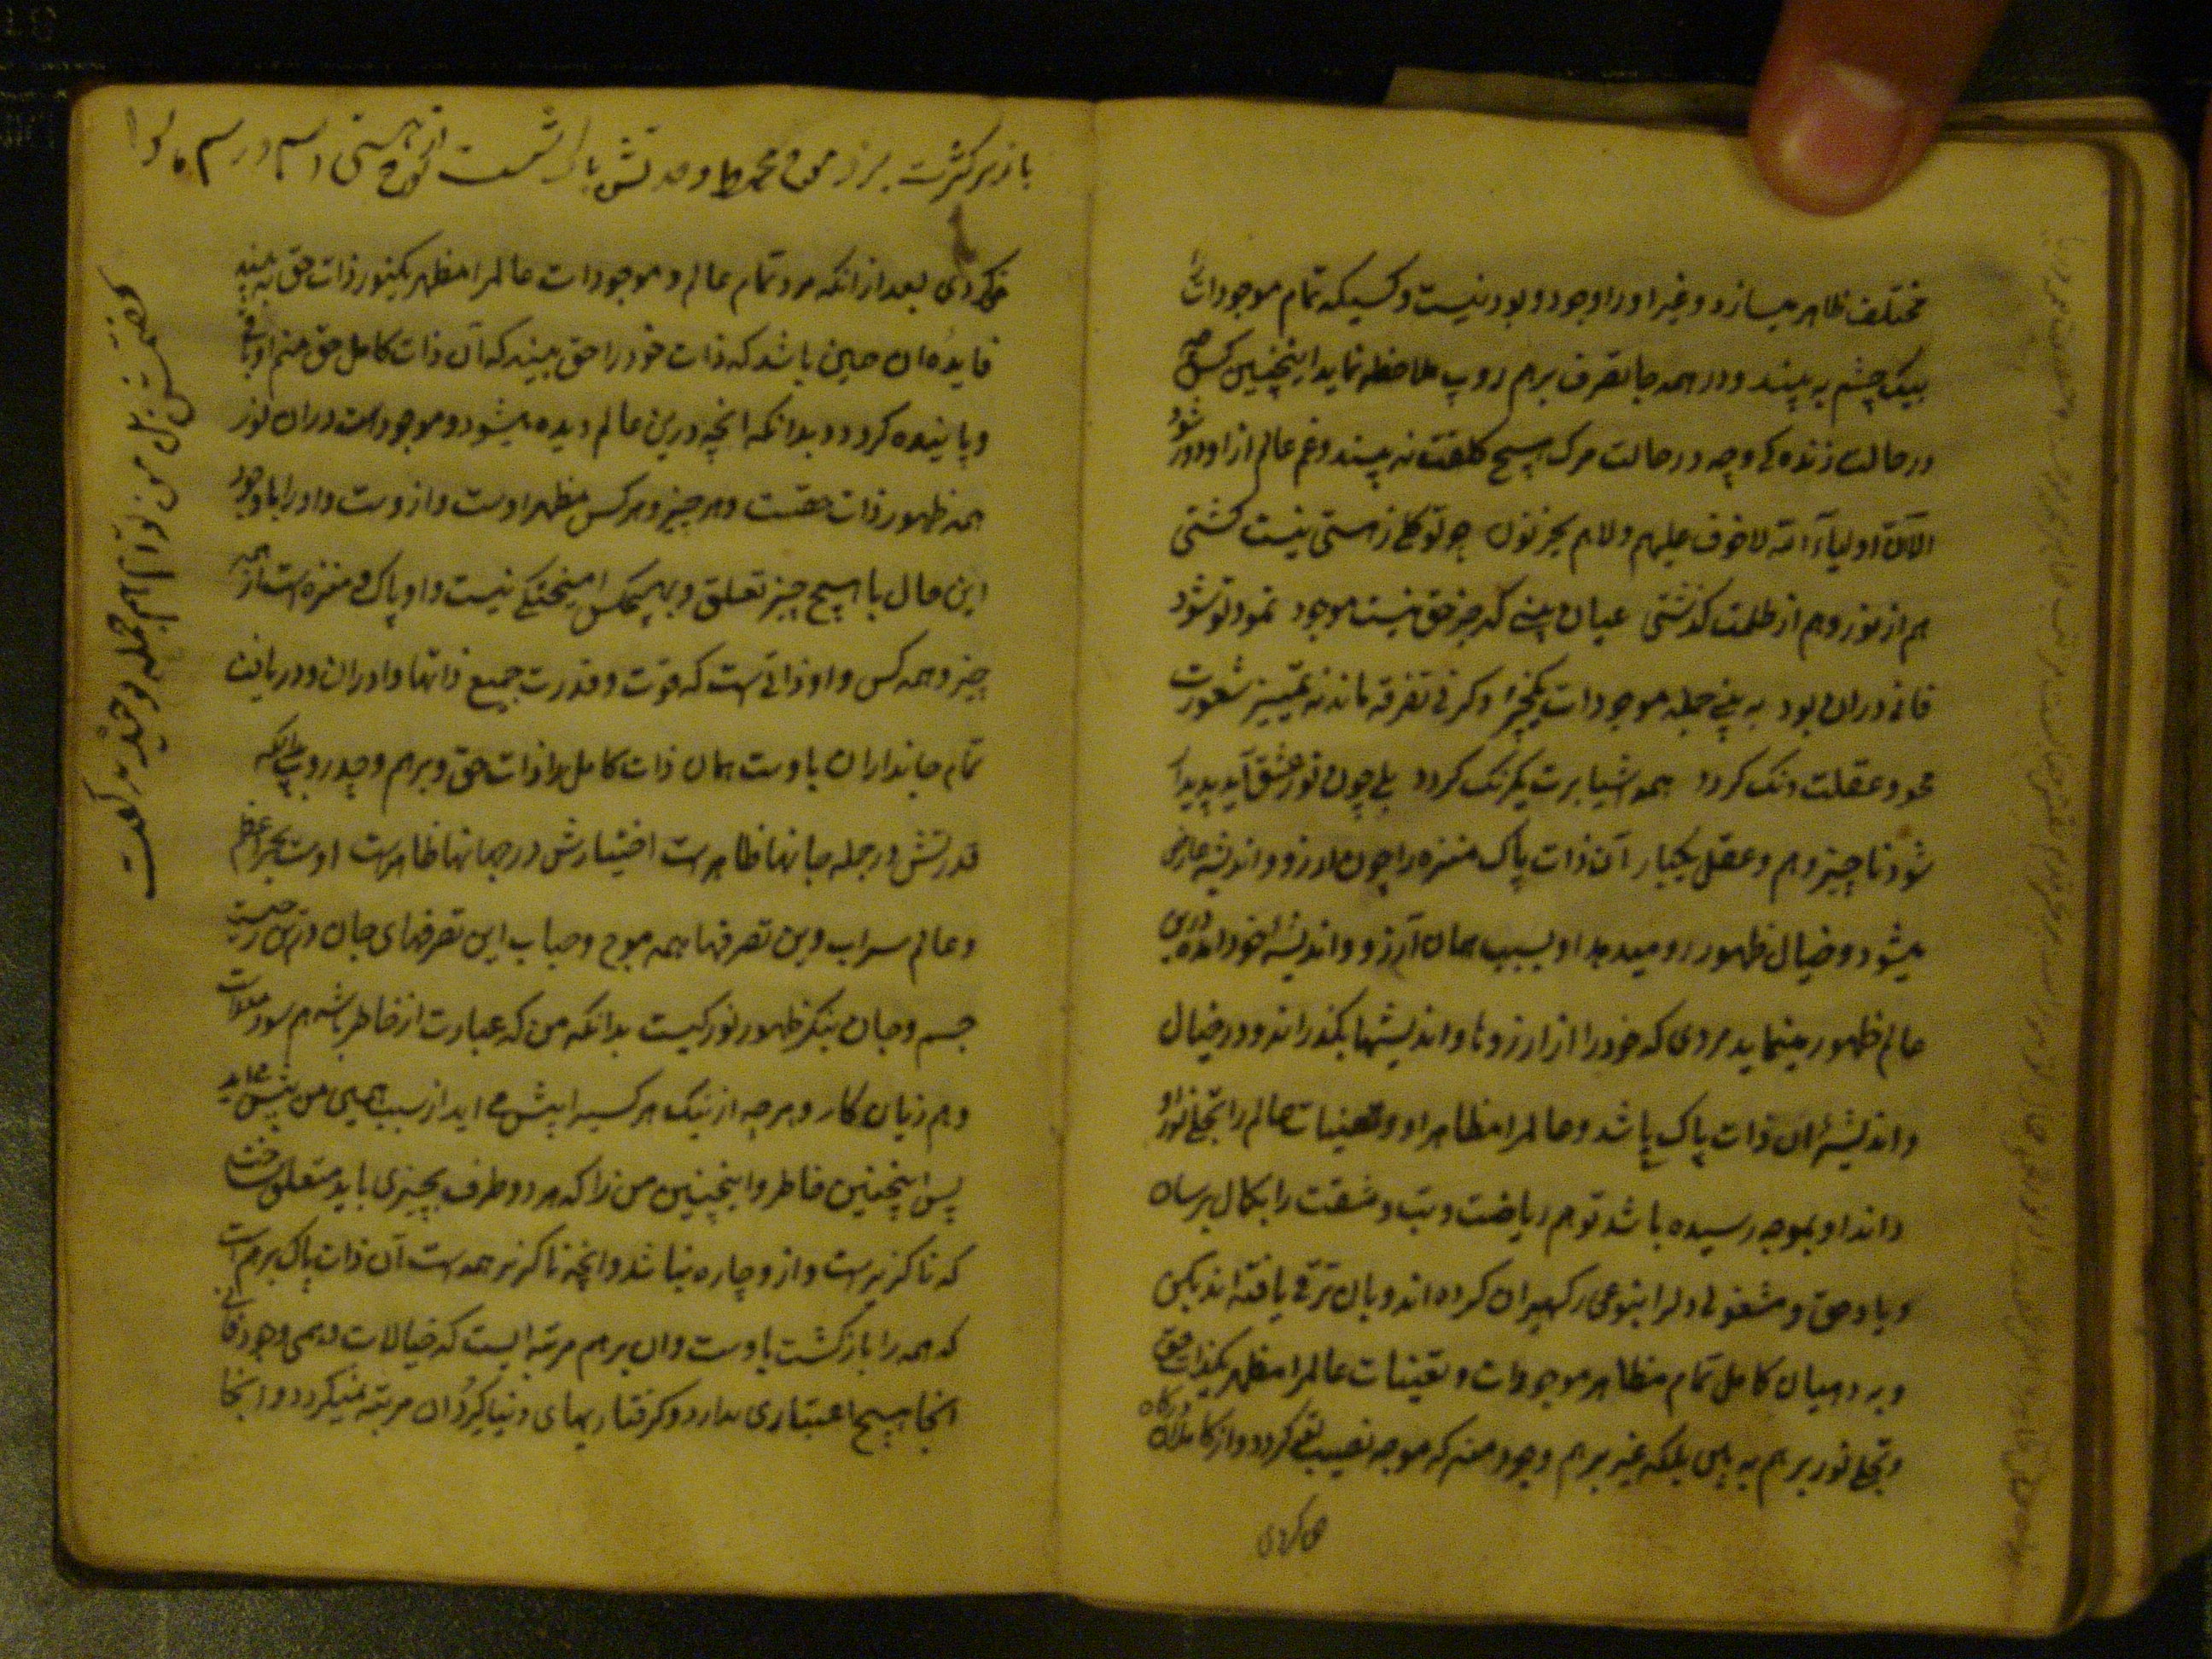 مختلف ظاهر میسازد و غیر او را وجود و بود نیست و کسیکه تمام موجودات را
بیک چشم به بیند و در همه جا تصرف برهم روپ ملاحظه نماید اینچنین کس چه
در حالت زنده کی و چه در حالت مرک هیچ کلفت نه بیند و غم عالم از او دور شود
الا ان اولیاء الله لا خوف علیهم ولا هم یحزنون چو تو کلی ز هستی نیست کشتی
هم از نور و هم از ظلمت کذشتی عیان بینی که جز حق نیست موجود نمود تو شود
فانی در ان بود به بینی جمله موجودات یکچیز او کر فی تفرقه ماند نه تمییز شعورت
محو و عقلت دنک کردد همه اشیا برت یکرنک کردد بلی چون نور عشق آید پدیدار
شود ناچیز وهم و عقل یکبار آن ذات پاک منزه را چون ارزو و اندیشه عارض
میشود و خیال ظهور رو میدهد او بسبب همان آرزو و اندیشه خود آمده درین
عالم ظهور مینماید مردی که خود را از ارزوها و اندیشها بکذراند و در خیال
و اندیشهٔ ان ذات پاک باشد و عالم را مظاهر او و تعینات عالم را تجلی نور او
داند او بموجه رسیده باشد تو هم ریاضت و تب و مشقت را بکمال برسان
و یاد حق و مشغولی دلرا بنوعی رکهیران کرده اند و بان ترقی یافته اند بکن
و به دهیان کامل تمام مظاهر موجودات و تعینات عالم را مظهر یکذات حق
و تجلی نور برهم به بین بلکه غیر برهم وجود منه که موجه نصیب تو کردد و از کاملان درکاه
حق کردی
باز بر کثرت بر زد موج محیط وحدتش باز کشت از موج هستی اسم و رسم ما و
حق کردی بعد از انکه مرد تمام عالم و موجودات عالم را مظهر یکنور ذات حق به بیند
فایدهٔ ان همین باشد که ذات خود را حق بیند که آن ذات کامل حق منم او باقی
و پاینده کردد و بدانکه انچه درین عالم دیده میشود و موجودست در ان نور
همه ظهور ذات حقست و هر چیز و هر کس مظهر اوست و ازوست و او را با وجود
این حال با هیچ چیز تعلق و بهیچکس امیختکی نیست و او پاک و منزه است از همه
چیز و همه کس و او ذاتیست که قوت و قدرت جمیع ذاتها و ادراک و دریافت
تمام جانداران باوست همان ذات کامل را ذات حق و برهم و چدروپ
قدرتش در جمله جانها ظاهرست اختیارش در جهانها ظاهرست اوست بحر اعظم
و عالم سراب وین تصرفها همه موج و حباب این تصرفهای جان در تن ز چیست
جسم و جان بنکر ظهور نور کیست بدانکه من که عبارت از خاطر باشد هم سود
و هم زیان کار و هر چه از نیک هر کسیرا پیش می اید از سبب همین من پیش می اید
پس اینچنین خاطر و اینچنین من را که هر دو طرف بچیزی باید متعلق ساخت
که ناکزیرست و ازو چاره نباشد و انچه ناکزیر همه ست آن ذات پاک برهم است
که همه را بازکشت باوست و ان برهم مرتبه ایست که خیالات وهمی وجود فانی
انجا هیچ اعتباری ندارد و کرفتاریهای دنیا کرد ان مرتبه نمیکردد و انجا
من تو ام هم جمله توحید